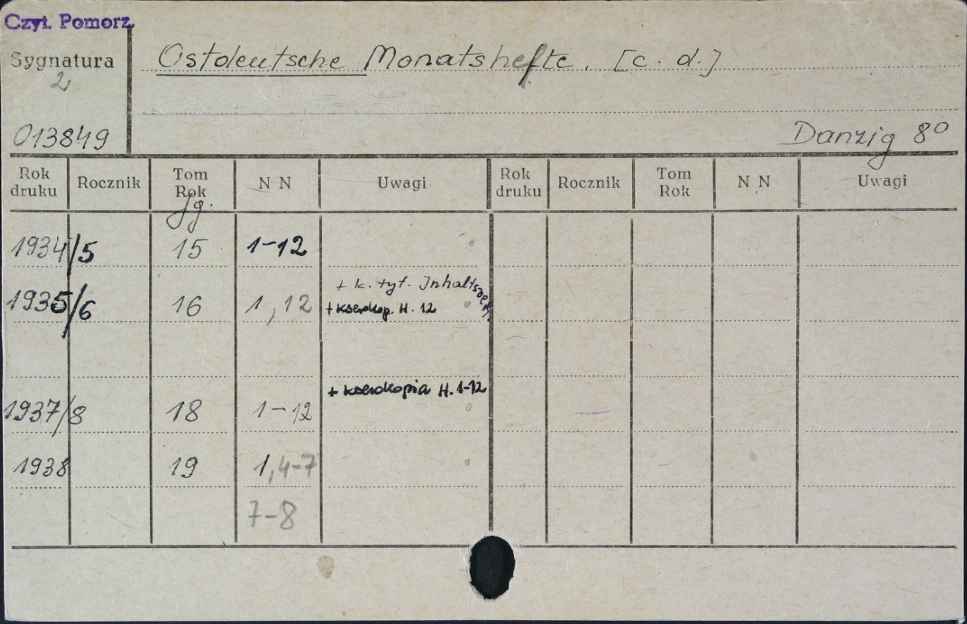 Czyt. Pomorz.
Sygnatura
2
013849
Ostdeutsche Monatshefte. [c. d.]
Danzig 8°
Rok druku Rocznik Tom Rok N N Uwagi Rok druku Rocznik Tom Rok N N Uwagi
Jg.
1934/5 15 1-12
1935/6 16 1, 12 + k. tyt. Inhaltsverz.
+ kserokop. H. 12
+ kserokopia H. 1-12
1937/8 18 1-12
1938 19 1, 4-7
7-8